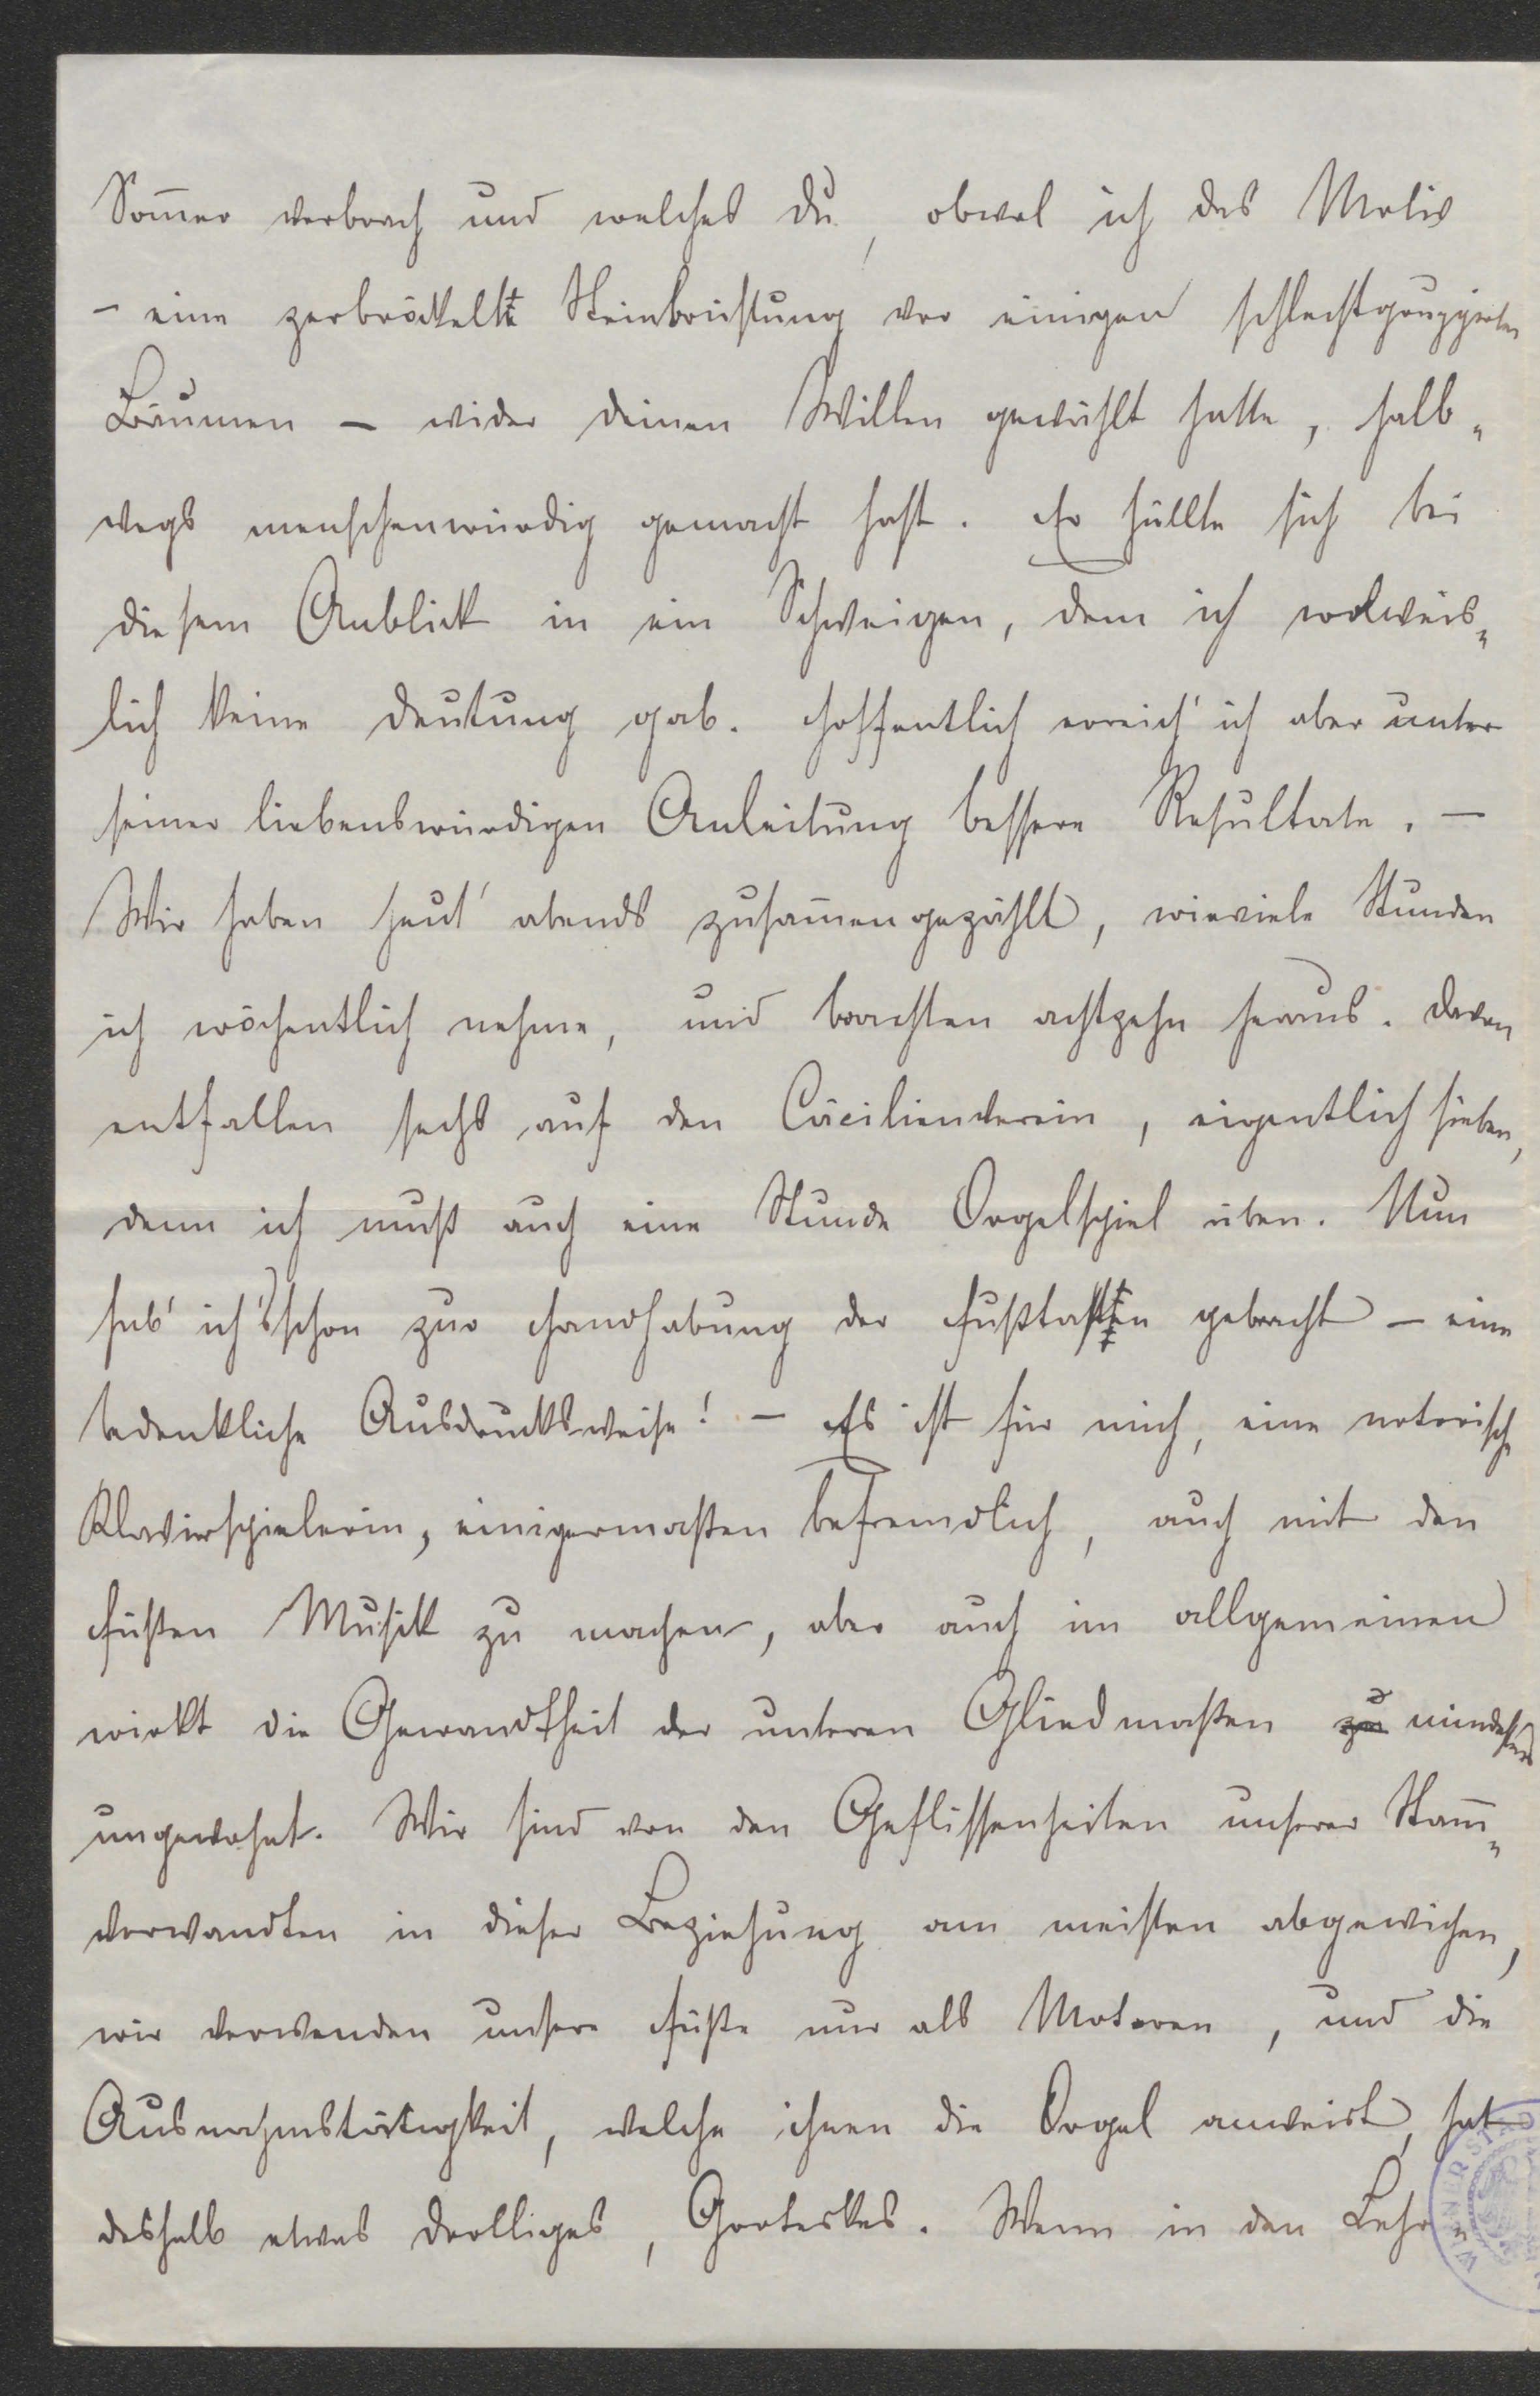 Som̄er verbrach und welches du, obwol ich das Motiv
– eine zerbröckelte Steinbrüstung vor einigen schlechtgruppierten
Bäumen – wider deinen Willen gewählt hatte, halb„
wegs menschenwürdig gemacht hast. Er hüllte sich bei
diesem Anblick in ein Schweigen, dem ich wolweis„
lich keine Deutung gab. Hoffentlich erreich' ich aber unter
seiner liebenswürdigen Anleitung bessere Resultate. –
Wir haben heut' abends zusam̄engezählt, wieviele Stunden
ich wöchentlich nehme, und brachten achtzehn heraus. Davon
entfallen sechs auf den Cäcilienverein, eigentlich sieben,
denn ich muß auch eine Stunde Orgelspiel üben. Nun
hab' ich's schon zur Handhabung der Fußtasten gebracht – eine
bedenkliche Ausdrucksweise! – Es ist für mich, eine notorische
Klavierspielerin, einigermaßen befremdlich, auch mit den
Füßen Musik zu machen, aber auch im allgemeinen
wirkt die Gewandtheit der unteren Gliedmaßen zu mindestens
ungewohnt. Wir sind von den Geflissenheiten unserer Stam̄„
verwandten in dieser Beziehung am meisten abgewichen,
wir verwenden unsere Füße nur als Motoren, und die
Ausnahmstätigkeit, welche ihnen die Orgel anweist, hat
deshalb etwas Drolliges, Groteskes. Wenn in den Lehr„
WIENER STAD